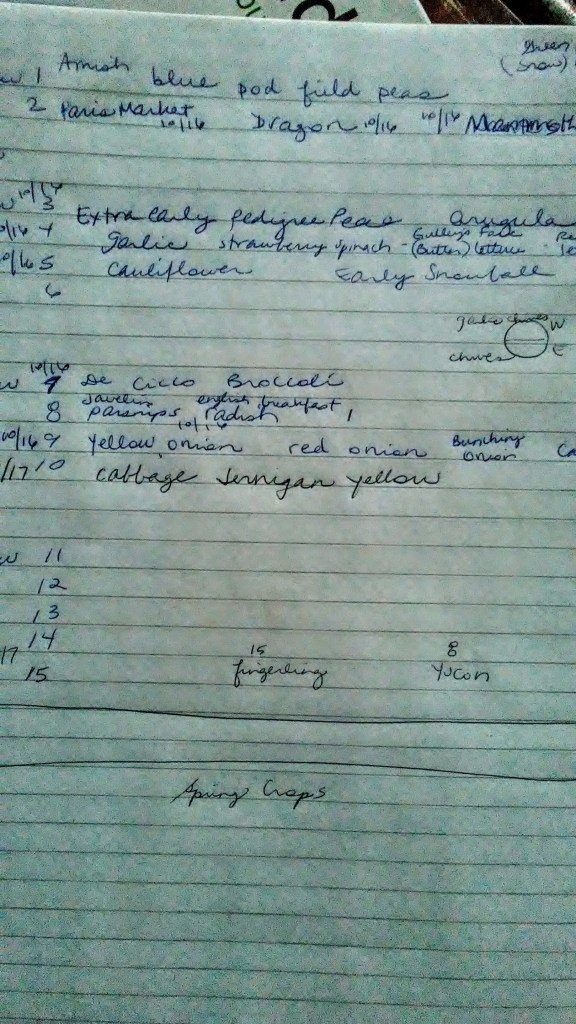 (Snow)
w 1 Amish blue pod field peas
2 Paris Market 10/16 Dragon 10/16 10/16
10/17
w 3 Extra early pedigree Peas arugula
10/16 4 garlic strawberry spinach - (Butter) lettuce
10/16 5 Cauliflower Early Snowball
6
garlic chives W
chives E
10/16
w 7 De Cicco Broccoli
javelin english breakfast
8 parsnips radish
10/16
10/16 9 yellow onion red onion Bunching onion Ca
/17 10 cabbage Jernigan yellow
w 11
12
13
14
17
15 8
15 fingerling Yucon
Spring Crops